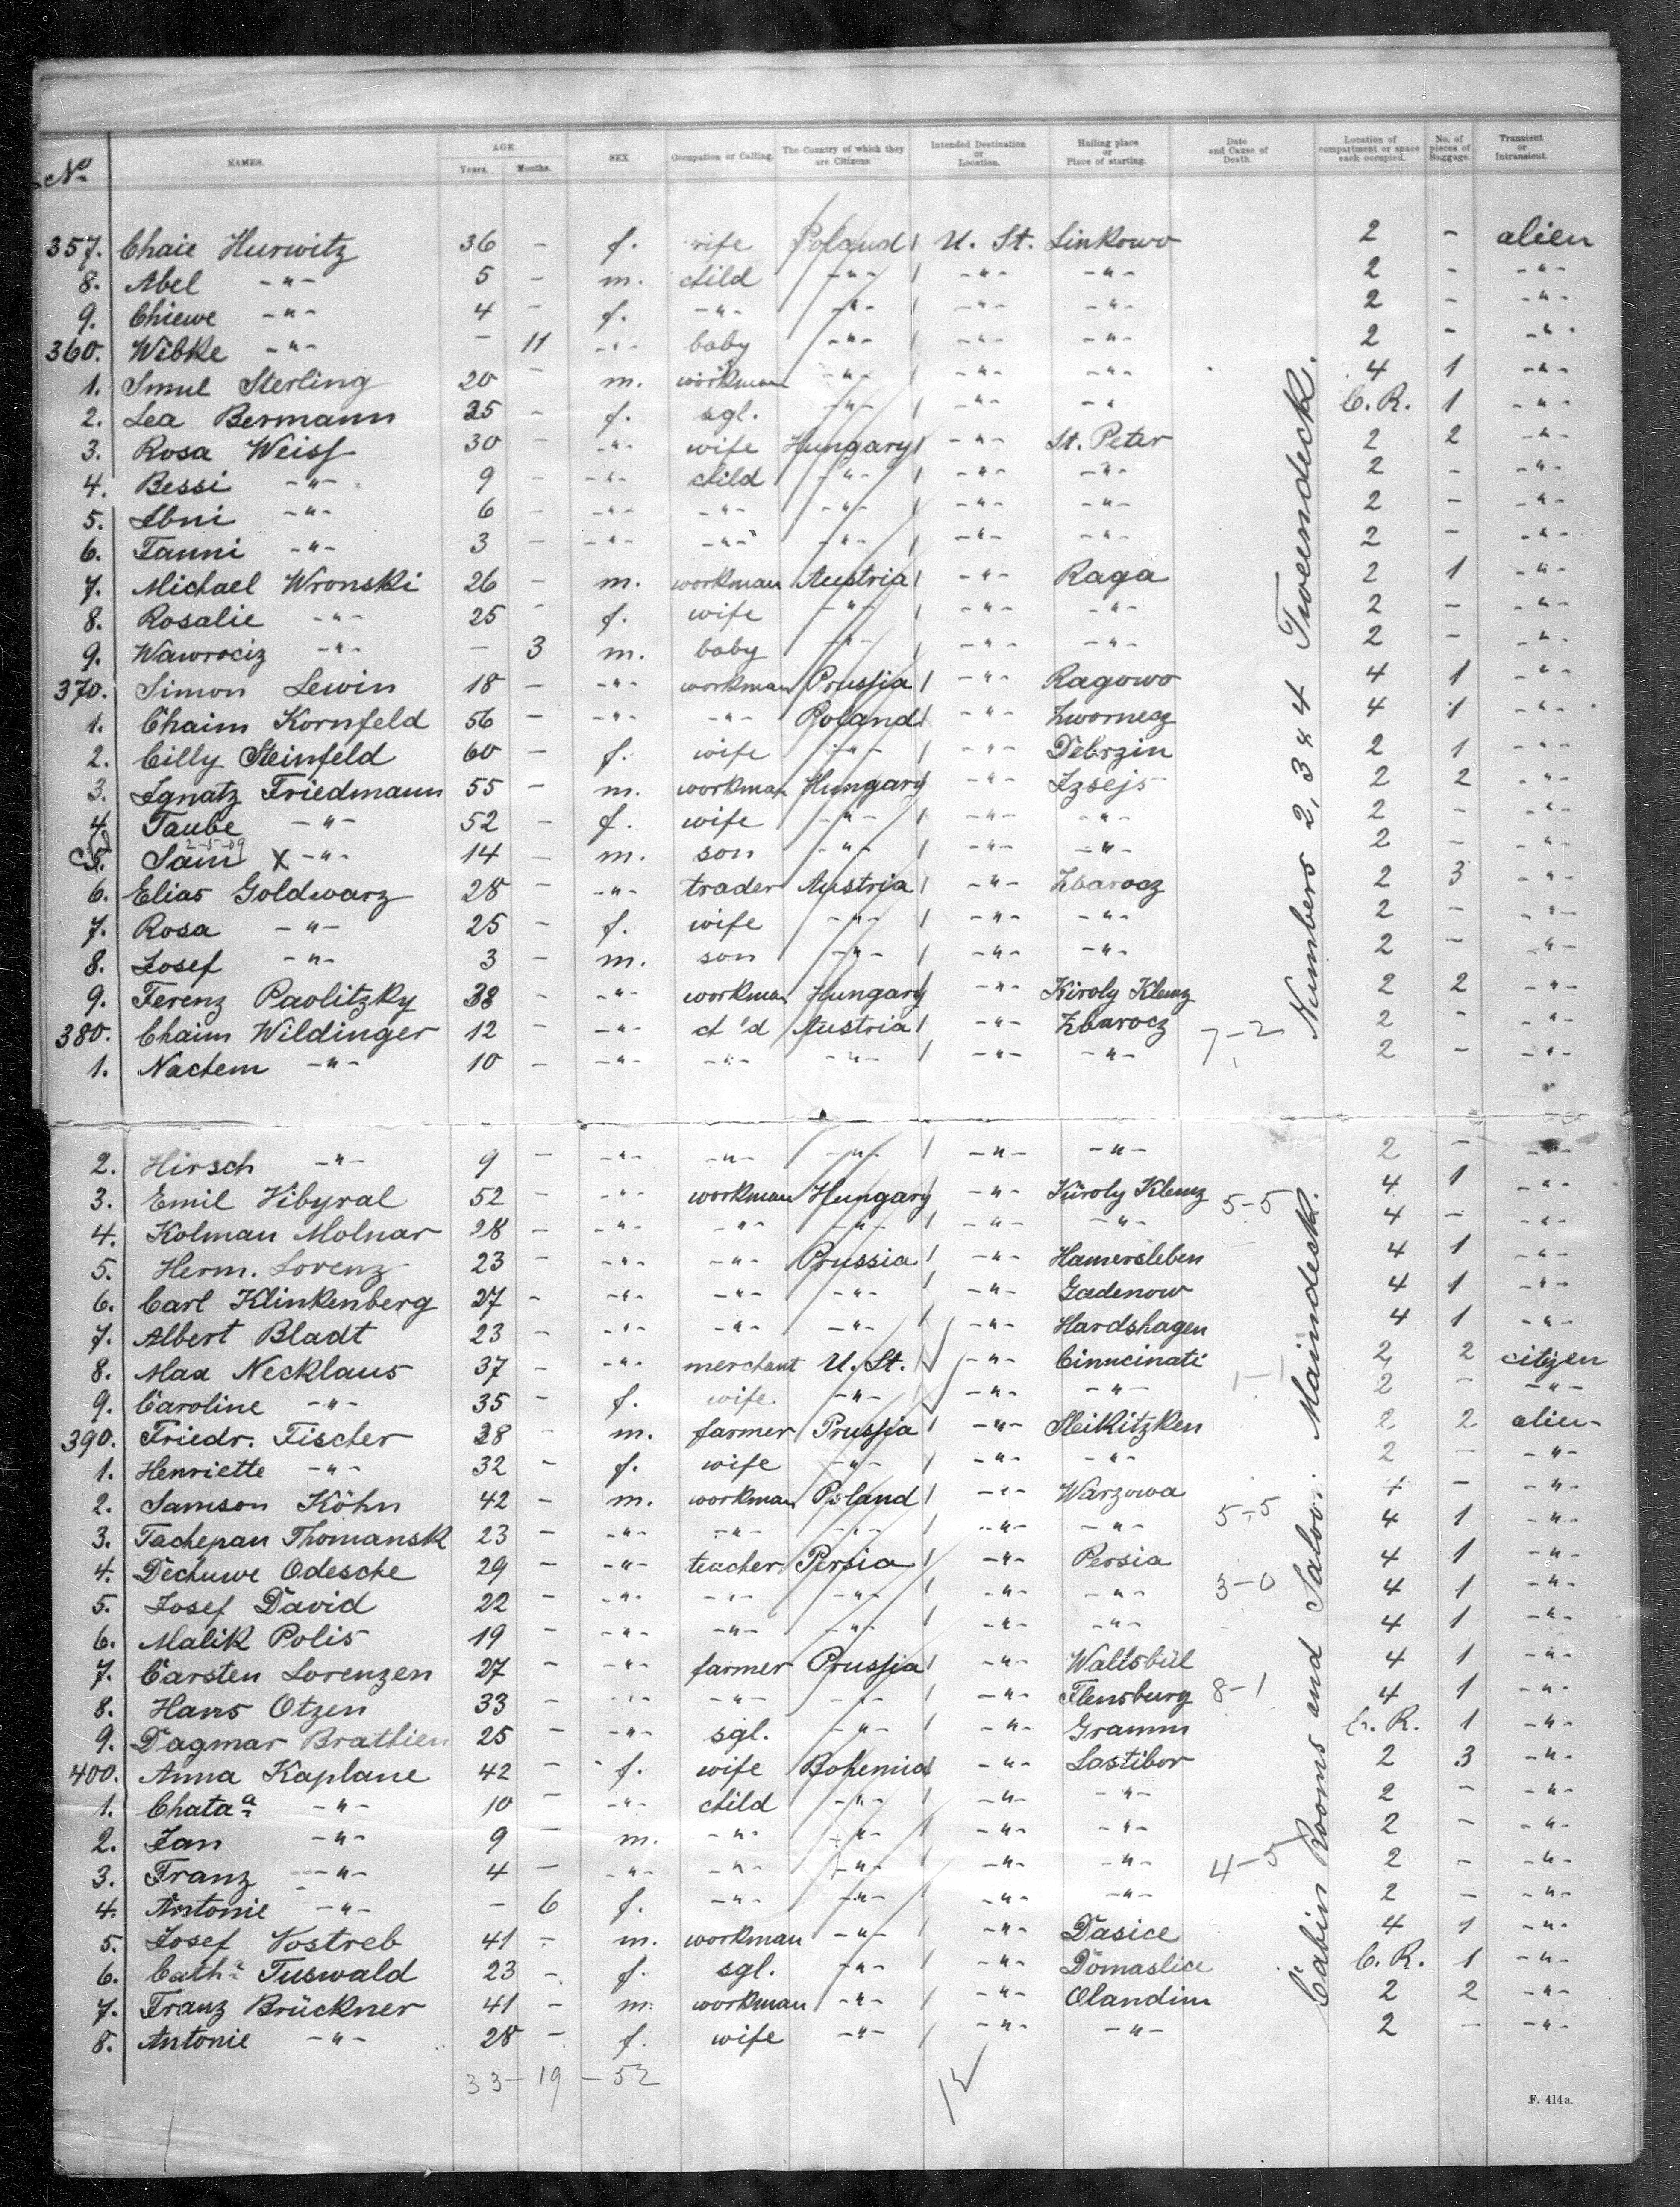 No. NAMES. AGE Years. Months. SEX Occupation or Calling. The Country of which they are Citizens Intended Destination or Location. Hailing place or Place of starting. Date and Cause of Death. Location of compartment or space each occupied. No. of pieces of Baggage. Transient or Intransient.
357. Chaie Hurwitz 36 - f. wife Poland U. St. Linkowo 2 - alien
8. Abel -"- 5 - m. child -"- -"- -"- 2 - -"-
9. Chiewe -"- 4 - f. -"- -"- -"- -"- 2 - -"-
360. Wibke -"- - 11 -"- baby -"- -"- -"- 2 - -"-
1. Smul Sterling 20 - m. workman -"- -"- -"- 4 1 -"-
2. Lea Bermann 25 - f. sgl. -"- -"- -"- C. R. 1 -"-
3. Rosa Weiss 30 - -"- wife Hungary -"- St. Peter 2 2 -"-
4. Bessi -"- 9 - -"- child -"- -"- -"- 2 - -"-
5. Ebni -"- 6 - -"- -"- -"- -"- -"- 2 - -"-
6. Fanni -"- 3 - -"- -"- -"- -"- -"- 2 - -"-
7. Michael Wronski 26 - m. workman Austria -"- Raga 2 1 -"-
8. Rosalie -"- 25 - f. wife -"- -"- -"- 2 - -"-
9. Wawrociz -"- - 3 m. baby -"- -"- -"- 2 - -"-
370. Simon Lewin 18 - -"- workman Prussia -"- Ragowo 4 1 -"-
1. Chaim Kornfeld 56 - -"- -"- Poland -"- Zwornesz 4 1 -"-
2. Cilly Steinfeld 60 - f. wife -"- -"- Debrzin 2 1 -"-
3. Ignatz Friedmann 55 - m. workman Hungary -"- Izsejs 2 2 -"-
4. Taube -"- 52 - f. wife -"- -"- -"- 2 - -"-
2-5-09
5. Sam X -"- 14 - m. son -"- -"- -"- 2 - -"-
6. Elias Goldwarz 28 - -"- trader Austria -"- Zbarocz 2 3 -"-
7. Rosa -"- 25 - f. wife -"- -"- -"- 2 - -"-
8. Josef -"- 3 - m. son -"- -"- -"- 2 - -"-
9. Ferenz Paolitzky 38 - -"- workman Hungary -"- Kiroly Klemz 2 2 -"-
380. Chaim Wildinger 12 - -"- ch'd Austria -"- Zbarocz 7-2 2 - -"-
1. Nachem -"- 10 - -"- -"- -"- -"- -"- 2 - -"-
2. Hirsch -"- 9 - -"- -"- -"- -"- -"- 2 - -"-
3. Emil Vibyral 52 - -"- workman Hungary -"- Kiroly Klemz 5-5 4 1 -"-
4. Kolman Molnar 28 - -"- -"- -"- -"- -"- 4 - -"-
5. Herm. Lorenz 23 - -"- -"- Prussia -"- Hamersleben 4 1 -"-
6. Carl Klinkenberg 27 - -"- -"- -"- -"- Gadenow 4 1 -"-
7. Albert Bladt 23 - -"- -"- -"- -"- Hardshagen 4 1 -"-
8. Max Necklaus 37 - -"- merchant U. St. -"- Cinncinati 1-1 2 2 citizen
9. Caroline -"- 35 - f. wife -"- -"- -"- 2 - -"-
390. Friedr. Fischer 38 - m. farmer Prussia -"- Sleikitzken 2 2 alien
1. Henriette -"- 32 - f. wife -"- -"- -"- 2 - -"-
2. Samson Köhn 42 - m. workman Poland -"- Warzowa 4 - -"-
3. Tachepan Thomansk 23 - -"- -"- -"- -"- -"- 5-5 4 1 -"-
4. Dechuwe Odesche 29 - -"- teacher Persia -"- Persia 4 1 -"-
5. Josef David 22 - -"- -"- -"- -"- -"- 3-0 4 1 -"-
6. Malik Polis 19 - -"- -"- -"- -"- -"- 4 1 -"-
7. Carsten Lorenzen 27 - -"- farmer Prussia -"- Wallsbül 4 1 -"-
8. Hans Otzen 33 - -"- -"- -"- -"- Flensburg 8-1 4 1 -"-
9. Dagmar Brathien 25 - -"- sgl. -"- -"- Gramm C. R. 1 -"-
400. Anna Kaplane 42 - f. wife Bohemia -"- Lastibor 2 3 -"-
1. Chata a -"- 10 - -"- child -"- -"- -"- 2 - -"-
2. Jan -"- 9 - m. -"- -"- -"- -"- 2 - -"-
3. Franz -"- 4 - -"- -"- -"- -"- -"- 4-5 2 - -"-
4. Antonie -"- - 6 f. -"- -"- -"- -"- 2 - -"-
5. Josef Vostreb 41 - m. workman -"- -"- Dasice 4 1 -"-
6. Cath.a Tuswald 23 - f. sgl. -"- -"- Domaslice C. R. 1 -"-
7. Franz Brückner 41 - m. workman -"- -"- Olandim 2 2 -"-
8. Antonie -"- 28 - f. wife -"- -"- -"- 2 - -"-
33-19-52
Numbers 2, 3 & 4 Tweendeck.
Cabin Rooms and Saloon. Maindeck.
F. 414a.